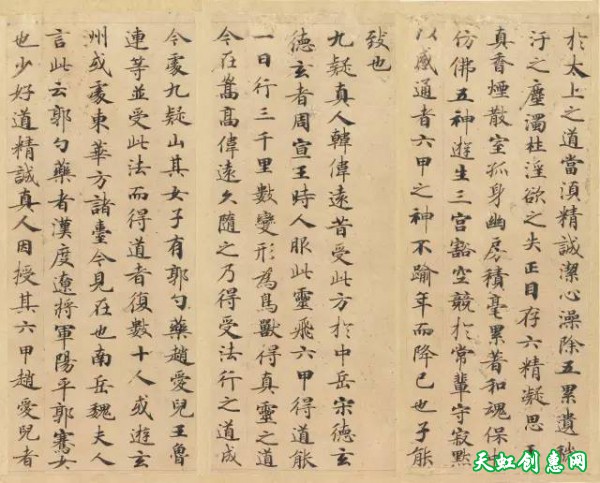 於太上之道當湏精誠潔心澡除五累遺穢
汙之塵濁杜淫欲之失正目存六精凝思玉
真香煙散室孤身幽房積毫累著和魂保中
仿佛五神遊生三宫豁空競於常輩守寂默
以感通者六甲之神不踰年而降已也子能
致也
九疑真人韓偉遠昔受此方於中岳宋德玄
德玄者周宣王時人服此靈飛六甲得道能
一日行三千里數變形為鳥獸得真靈之道
今在嵩高偉遠久隨之乃得受法行之道成
今處九疑山其女子有郭勺藥趙愛兒王魯
連等並受此法而得道者復數十人或遊玄
州或處東華方諸臺今見在也南岳魏夫人
言此云郭勺藥者漢度遼將軍陽平郭騫女
也少好道精誠真人因授其六甲趙愛兒者
天虹创惠网